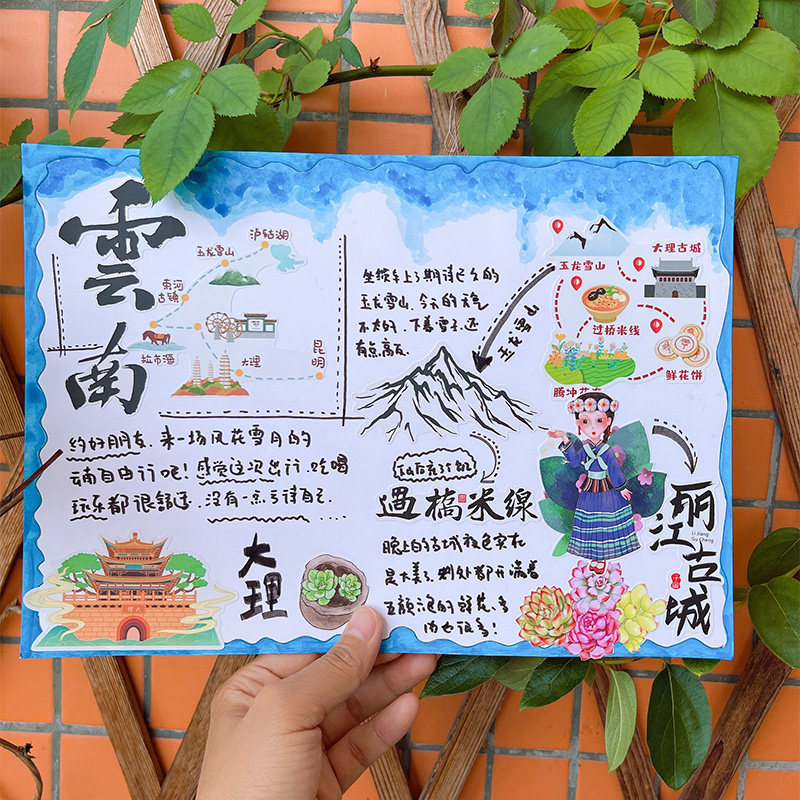 雲南
泸沽湖
玉龙雪山
束河
古镇
拉市海
大理
昆明
约好朋友.来一场风花雪月的
云南自由行吧!感觉这次出行.吃喝
玩乐都很舒适.没有一点亏待自己.
坐缆车上了期待已久的
玉龙雪山.今天的天气
不太好.下着雪子.还
有点高反.
玉龙雪山
玉龙雪山
大理古城
过桥米线
鲜花饼
腾冲花海
過橋米線
晚上的古城夜色实在
是太美了.到处都开满着
五颜六色的鲜花.多
肉也很多!
大理
丽江古城
Li Jiang
Gu Cheng